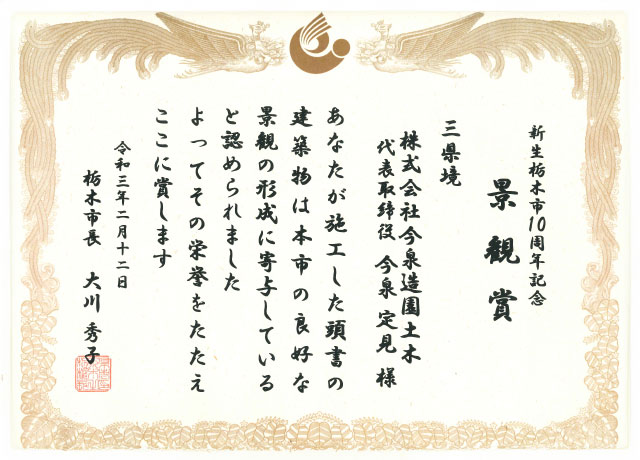 新生栃木市10周年記念
景観賞
三県境
株式会社今泉造園土木
代表取締役 今泉 定見 様
あなたが施工した頭書の
建築物は本市の良好な
景観の形成に寄与している
と認められました
よってその栄誉をたたえ
ここに賞します
令和三年二月十二日
栃木市長 大川 秀子